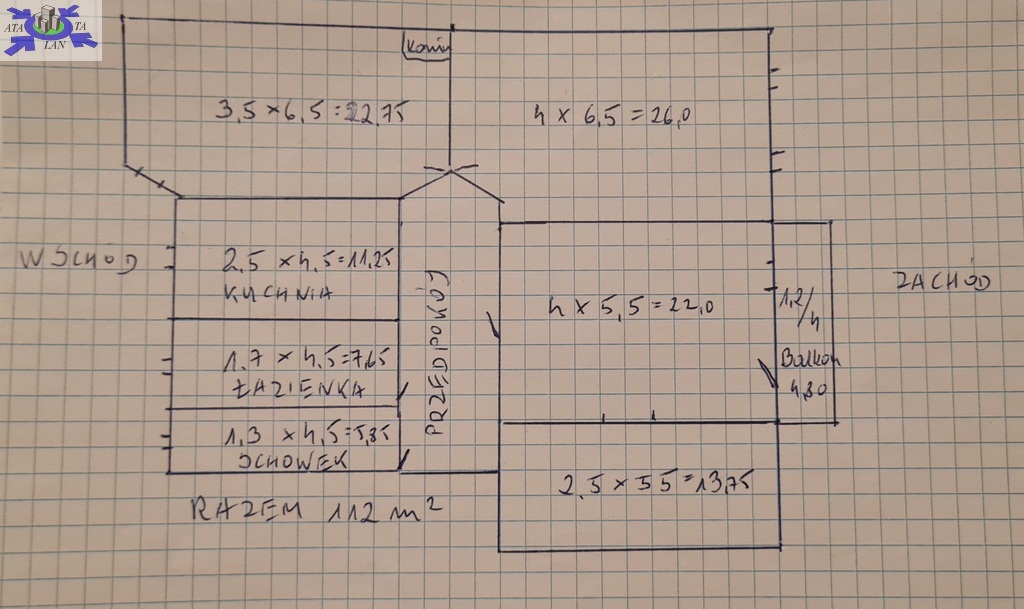 ATA TA
LAN
Komin
3,5 x 6,5 = 22,75
4 x 6,5 = 26,0
WSCHÓD
2,5 x 4,5 = 11,25
KUCHNIA
1,7 x 4,5 = 7,65
ŁAZIENKA
1,3 x 4,5 = 5,85
SCHOWEK
PRZEDPOKÓJ
4 x 5,5 = 22,0
1,2/4
Balkon
4,80
ZACHÓD
2,5 x 5 5 = 13,75
RAZEM 112 m²